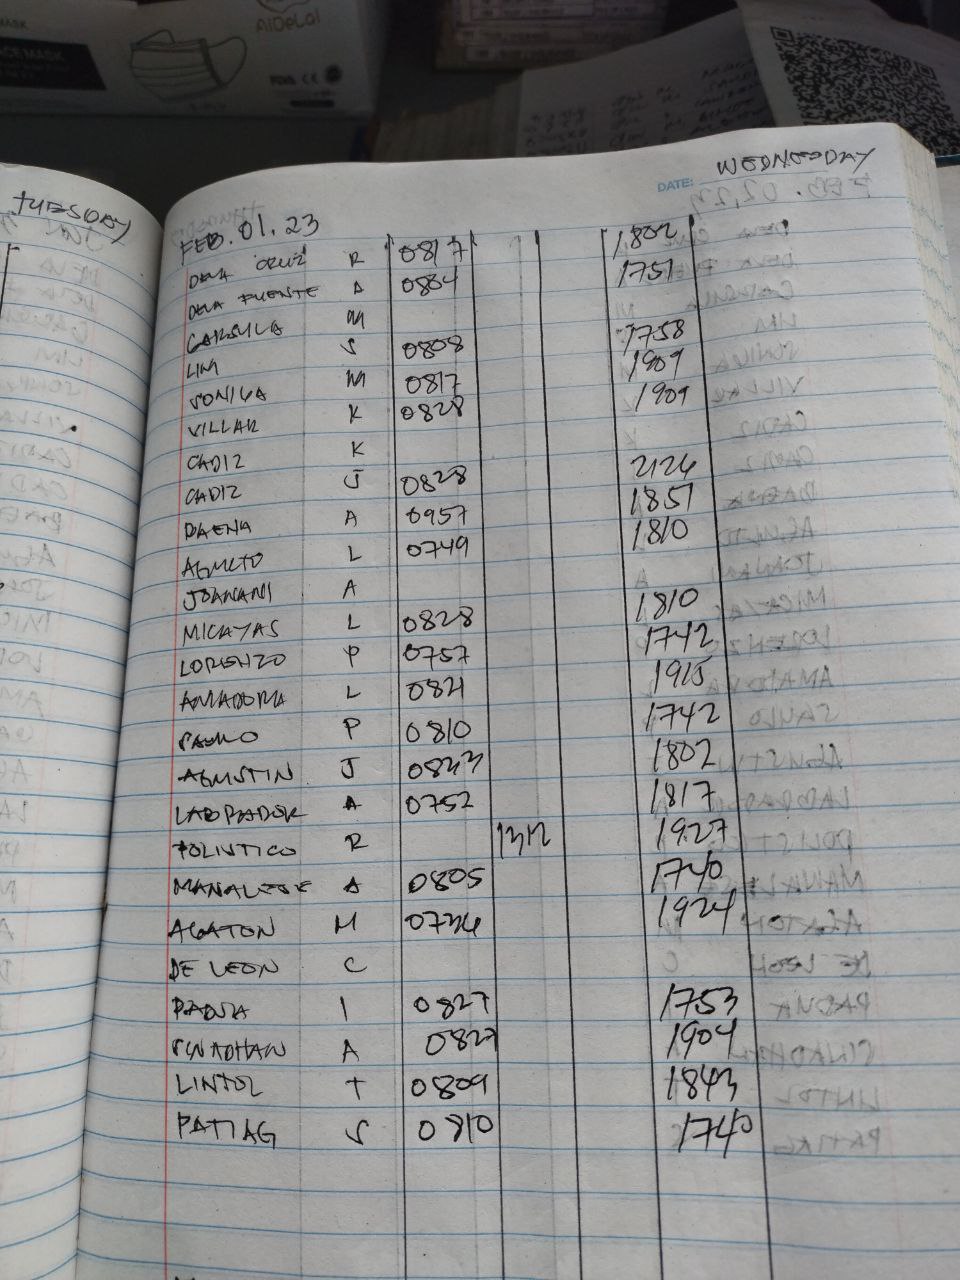 AiDeLai
CE MASK
TUESDAY
WEDNESDAY
DATE:
FEB. 01. 23
DELA CRUZ R 0817 1802
DELA FUENTE A 0804 1751
M
LIM S 0808 1758
M 0817 1909
VILLAR K 0828 1909
CADIZ K
CADIZ J 0828 2126
BAENA A 0957 1851
L 0749 1810
JOANANI A
MICAYAS L 0828 1810
LORENZO P 0757 1742
AMADORA L 0821 1915
P 0810 1742
AGUSTIN J 0823 1802
LABRADOR A 0752 1817
POLISTICO R 1312 1927
MANALESE A 0805 1740
AGATON M 0736 1924
DE LEON C
PADUA I 0827 1753
SINADHAN A 0827 1904
LINTOL T 0809 1843
PATIAG S 0810 1740